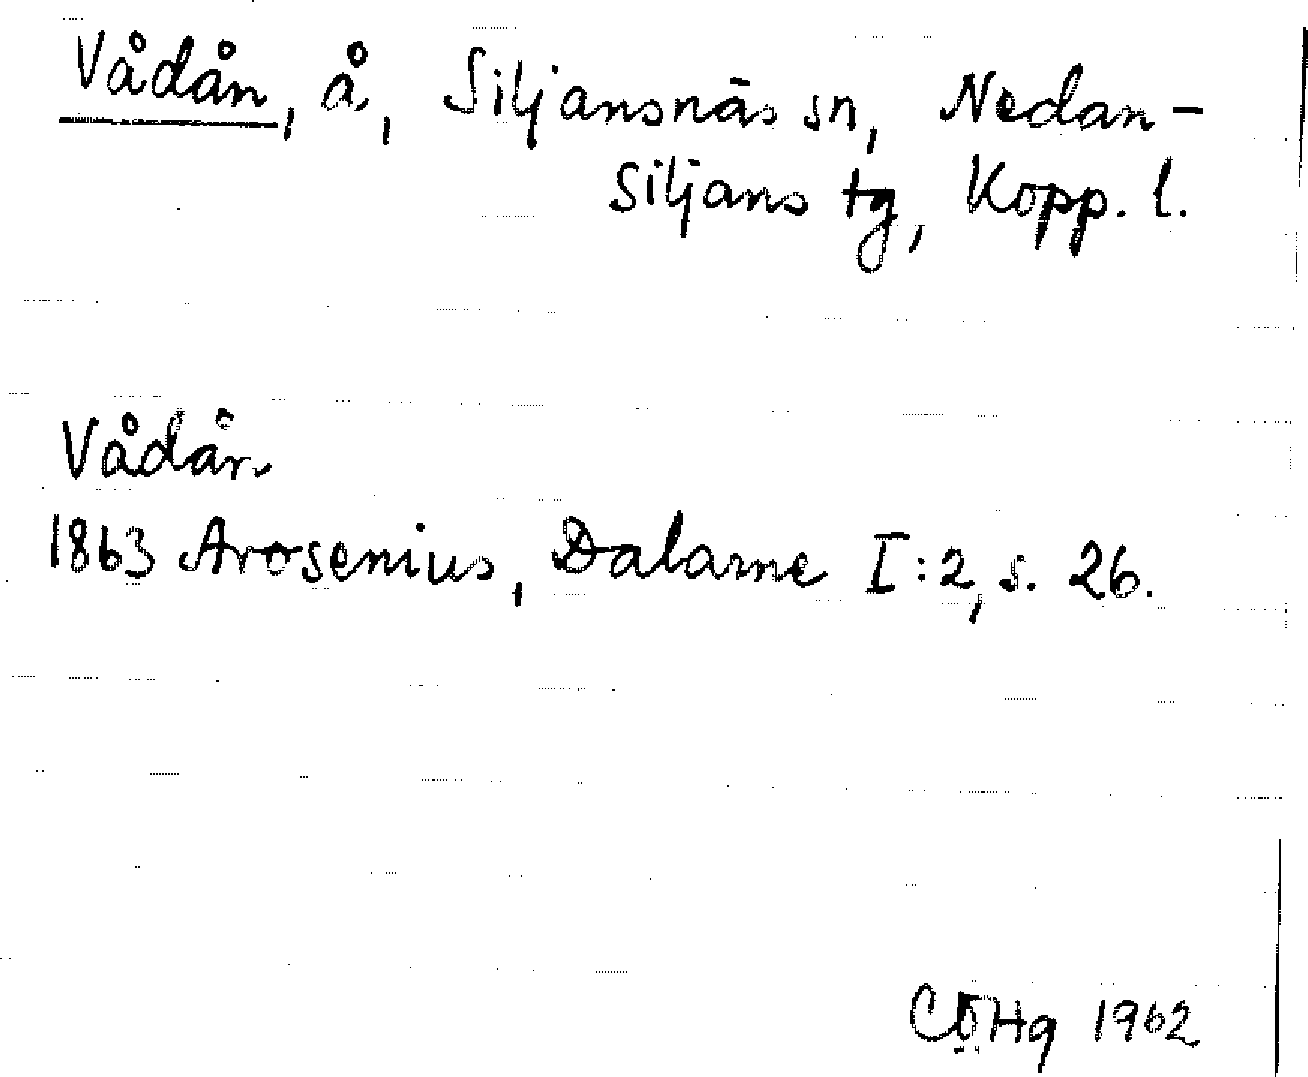 Vådån, å, Siljansnäs sn, Nedan-
Siljans tg, Kopp. l.
Vådån
1863 Arosenius, Dalarne I:2, s. 26.
1962